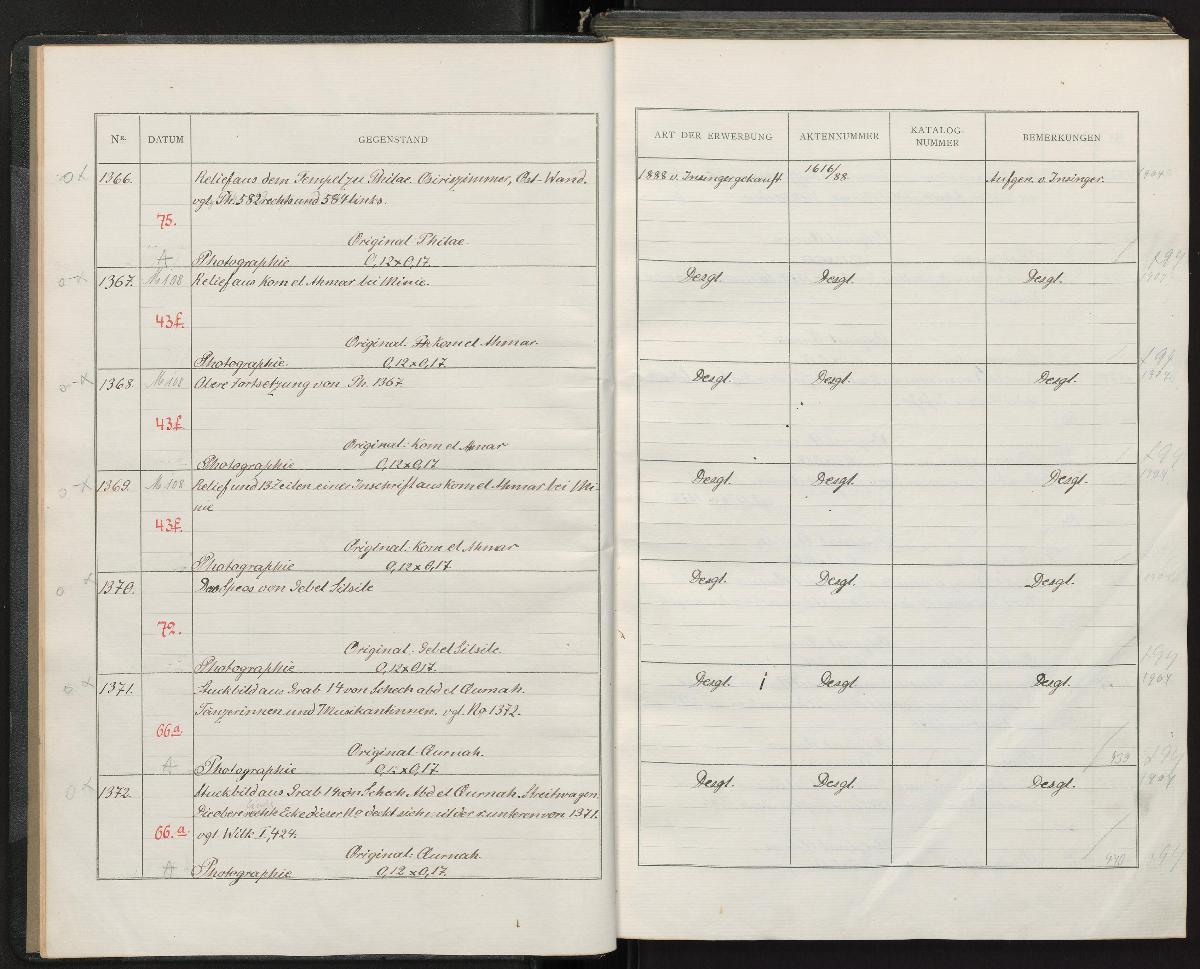 Nr. DATUM GEGENSTAND ART DER ERWERBUNG AKTENNUMMER KATALOG-NUMMER BEMERKUNGEN
1366. Relief aus dem Tempel zu Philae. Osiriszimmer, Ost-Wand. 1888 v. Insinger gekauft 1616/88 Aufgen. v. Insinger.
vgl. Ph. 582 rechts und 584 links.
75.
Original: Philae.
A Photographie 0,12×0,17.
1367. M 108 Relief aus Kom el Ahmar bei Minie. Desgl. Desgl. Desgl.
43f.
Original: Kom el Ahmar.
Photographie. 0,12×0,17.
1368. M 108 Obere Fortsetzung von Ph. 1367 Desgl. Desgl. Desgl.
43f.
Original: Kom el Ahmar
Photographie 0,12×0,17
1369. M 108 Relief und 13 Zeilen einer Inschrift aus Kom el Ahmar bei Mi- Desgl. Desgl. Desgl.
nie
43f.
Original: Kom el Ahmar
Photographie 0,12×0,17
1370. Das Speos von Gebel Silsile Desgl. Desgl. Desgl.
72.
Original: Gebel Silsile.
Photographie 0,12×0,17.
1371. Stuckbild aus Grab 14 von Schech abd el Qurnah. Desgl. Desgl. Desgl.
Tänzerinnen und Musikantinnen. vgl. No 1372.
66a.
Original: Qurnah.
A Photographie 0,12×0,17 939
1372. Stuckbild aus Grab 14 von Schech Abd el Qurnah. Streitwagen. Desgl. Desgl. Desgl.
Die obere rechte Ecke dieser No deckt sich mit der r. unteren von 1371.
66.a. vgl. Wilk. I, 424.
Original: Qurnah.
A Photographie 0,12×0,17. 940